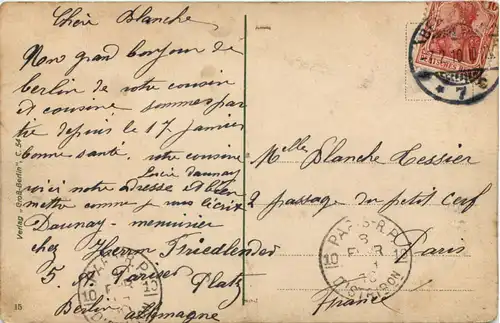 Chère Blanche
Mon grand bonjour de
berlin de votre cousin
et cousine sommes par
tie depuis le 17 janvier
bonne santé. votre cousine
Lucie Daunay
voici notre adresse
mettre comme je vous l'écrix
Daunay - menuisier
chez Herrn Friedlender
5. Pariser Platz
Berlin
allemagne
Melle Blanche Messier
2 passage du petit Cerf
Paris
France
Verlag „Groß-Berlin“, C. 54
15
PARIS R.P.
DISTRIBON
* * 7